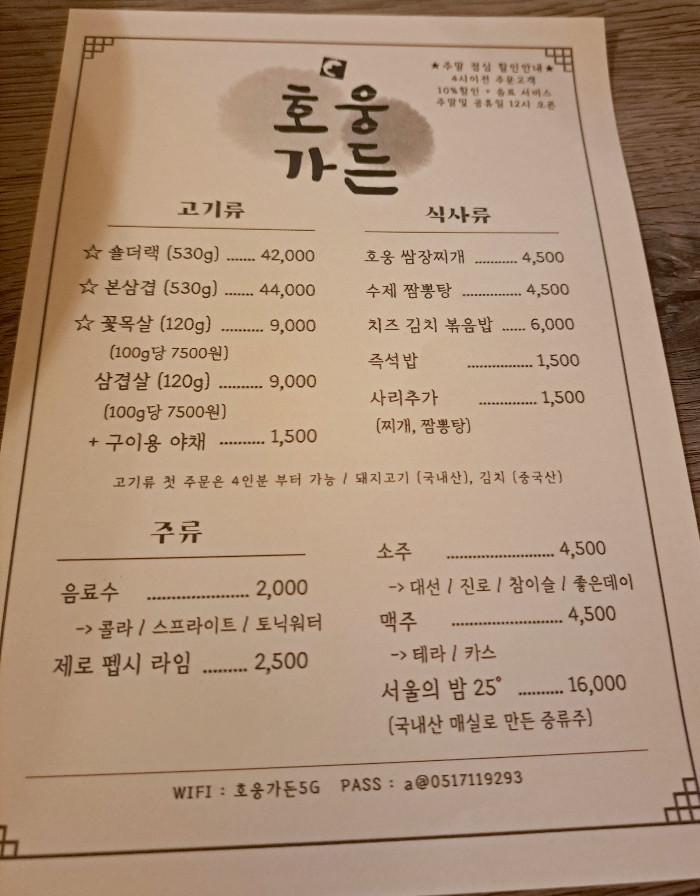 ★주말 점심 할인안내★
4시이전 주문고객
10%할인 + 음료 서비스
주말및 공휴일 12시 오픈
호웅
가든
고기류
☆ 숄더랙 (530g) ....... 42,000
☆ 본삼겹 (530g) ....... 44,000
☆ 꽃목살 (120g) .......... 9,000
(100g당 7500원)
삼겹살 (120g) .......... 9,000
(100g당 7500원)
+ 구이용 야채 .......... 1,500
식사류
호웅 쌈장찌개 .......... 4,500
수제 짬뽕탕 ............... 4,500
치즈 김치 볶음밥 ...... 6,000
즉석밥 ................. 1,500
사리추가 ............... 1,500
(찌개, 짬뽕탕)
고기류 첫 주문은 4인분 부터 가능 / 돼지고기 (국내산), 김치 (중국산)
주류
음료수 ...................... 2,000
-> 콜라 / 스프라이트 / 토닉워터
제로 펩시 라임 ......... 2,500
소주 ........................ 4,500
-> 대선 / 진로 / 참이슬 / 좋은데이
맥주 ........................ 4,500
-> 테라 / 카스
서울의 밤 25° .......... 16,000
(국내산 매실로 만든 증류주)
WIFI : 호웅가든5G PASS : a@0517119293